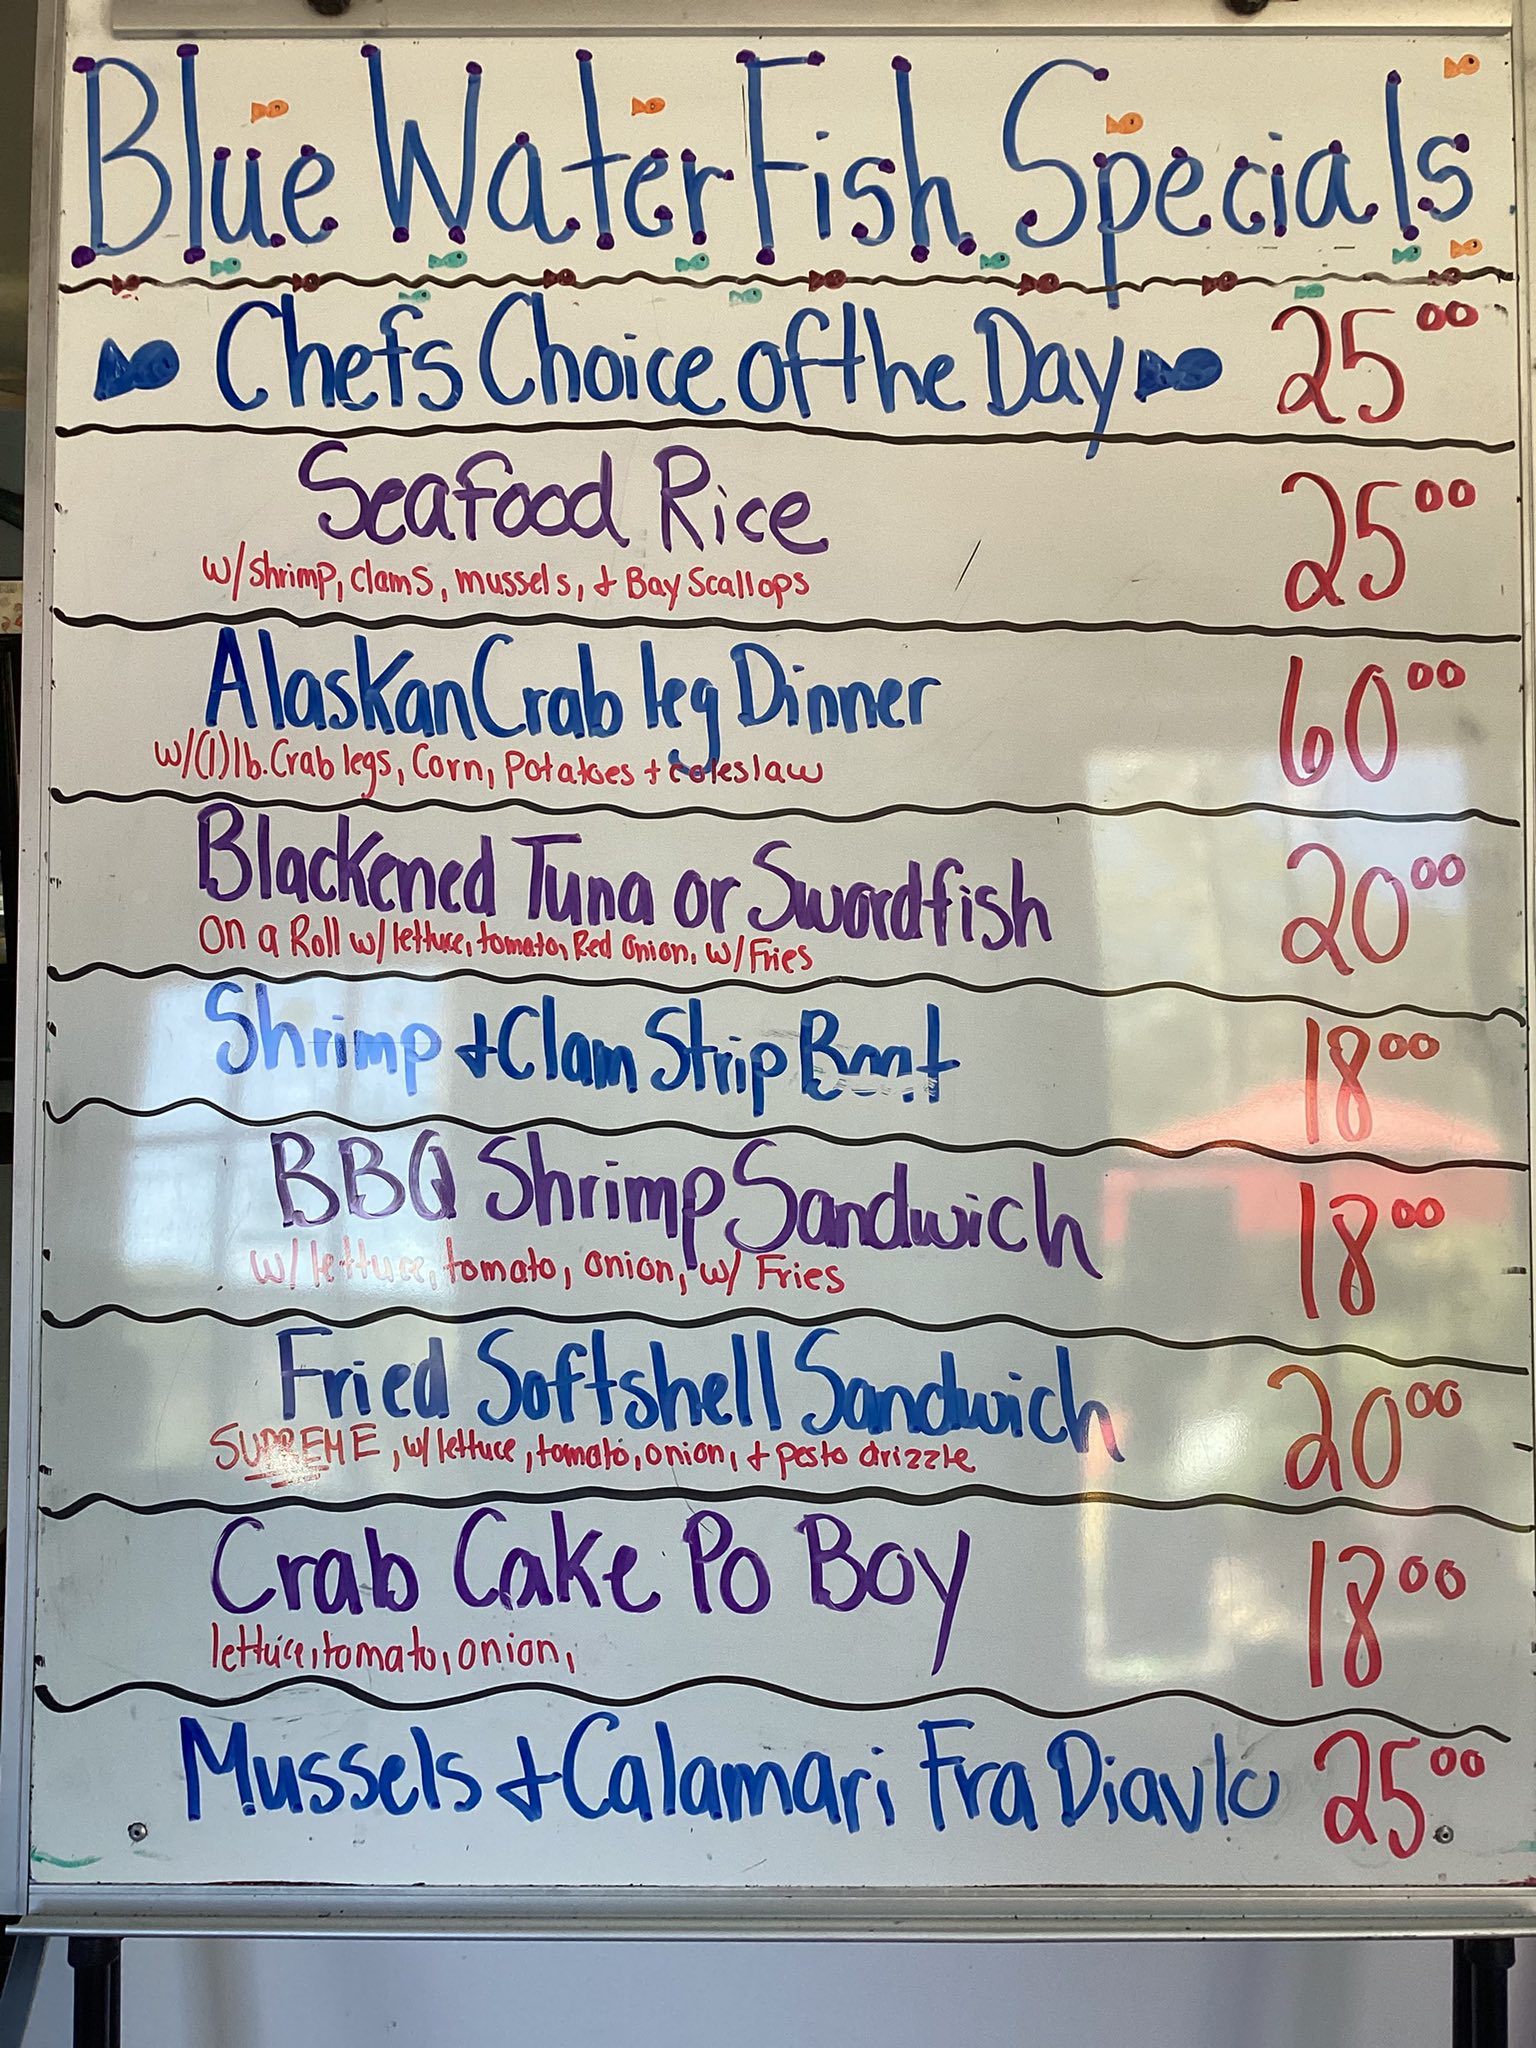 Blue Water Fish Specials
Chefs Choice of the Day 25 00
Seafood Rice 25 00
w/ shrimp, clams, mussels, + Bay Scallops
Alaskan Crab leg Dinner 60 00
w/(1) lb. Crab legs, Corn, Potatoes + coleslaw
Blackened Tuna or Swordfish 20 00
On a Roll w/ lettuce, tomato, Red Onion, w/ Fries
Shrimp + Clam Strip Boat 18 00
BBQ Shrimp Sandwich 18 00
w/ lettuce, tomato, onion, w/ Fries
Fried Softshell Sandwich 20 00
SUPREME, w/ lettuce, tomato, onion, + pesto drizzle
Crab Cake Po Boy 18 00
lettuce, tomato, onion,
Mussels + Calamari Fra Diavlo 25 00